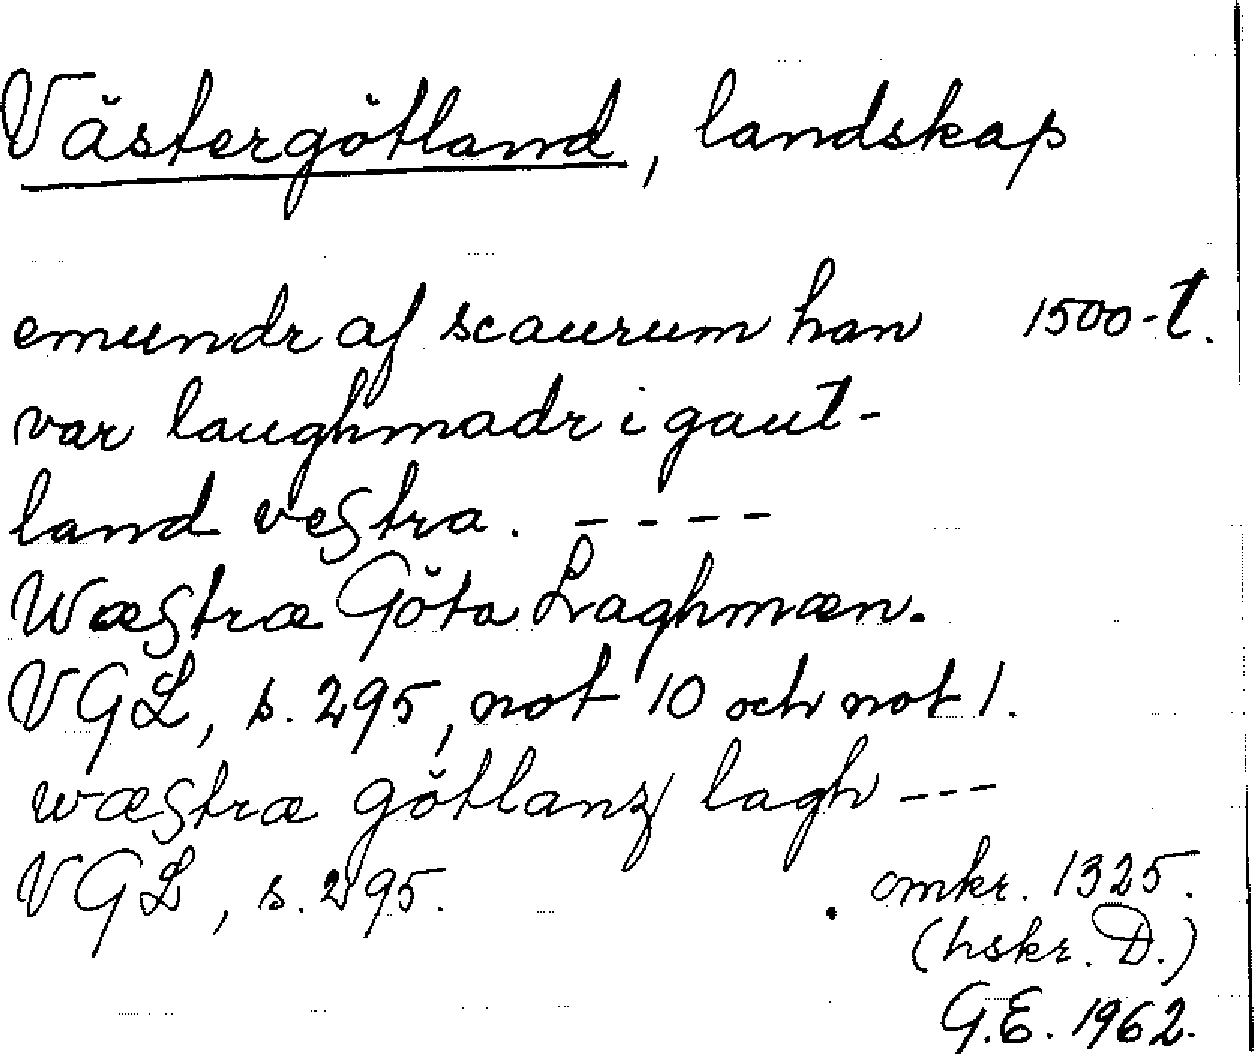 Västergötland, landskap
emundr af scaurum han 1500-t.
var laughmadr i gaut-
land veſtra. ----
Wæſtræ Göta Laghmæn.
VGL, s. 295, not 10 och not 1.
wæſtræ götlanz lagh ---
VGL, s. 295. omkr. 1325.
(hskr. D.)
G.E. 1962.